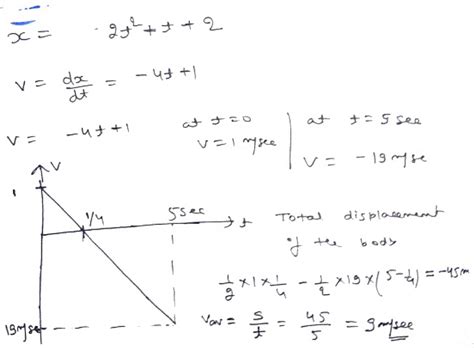 x = 2t² + t + 2
v = dx/dt = -4t+1
v = -4t+1
at t=0
v = 1 m/sec
at t = 5 sec
v = -19 m/se
v
1
1/4
5 sec
t
19 m/se
Total displacement
of the body
1/2 × 1 × 1/4 - 1/2 × 19 × (5 - 1/4) = -45m
Vav = s/t = 45/5 = 9 m/sec